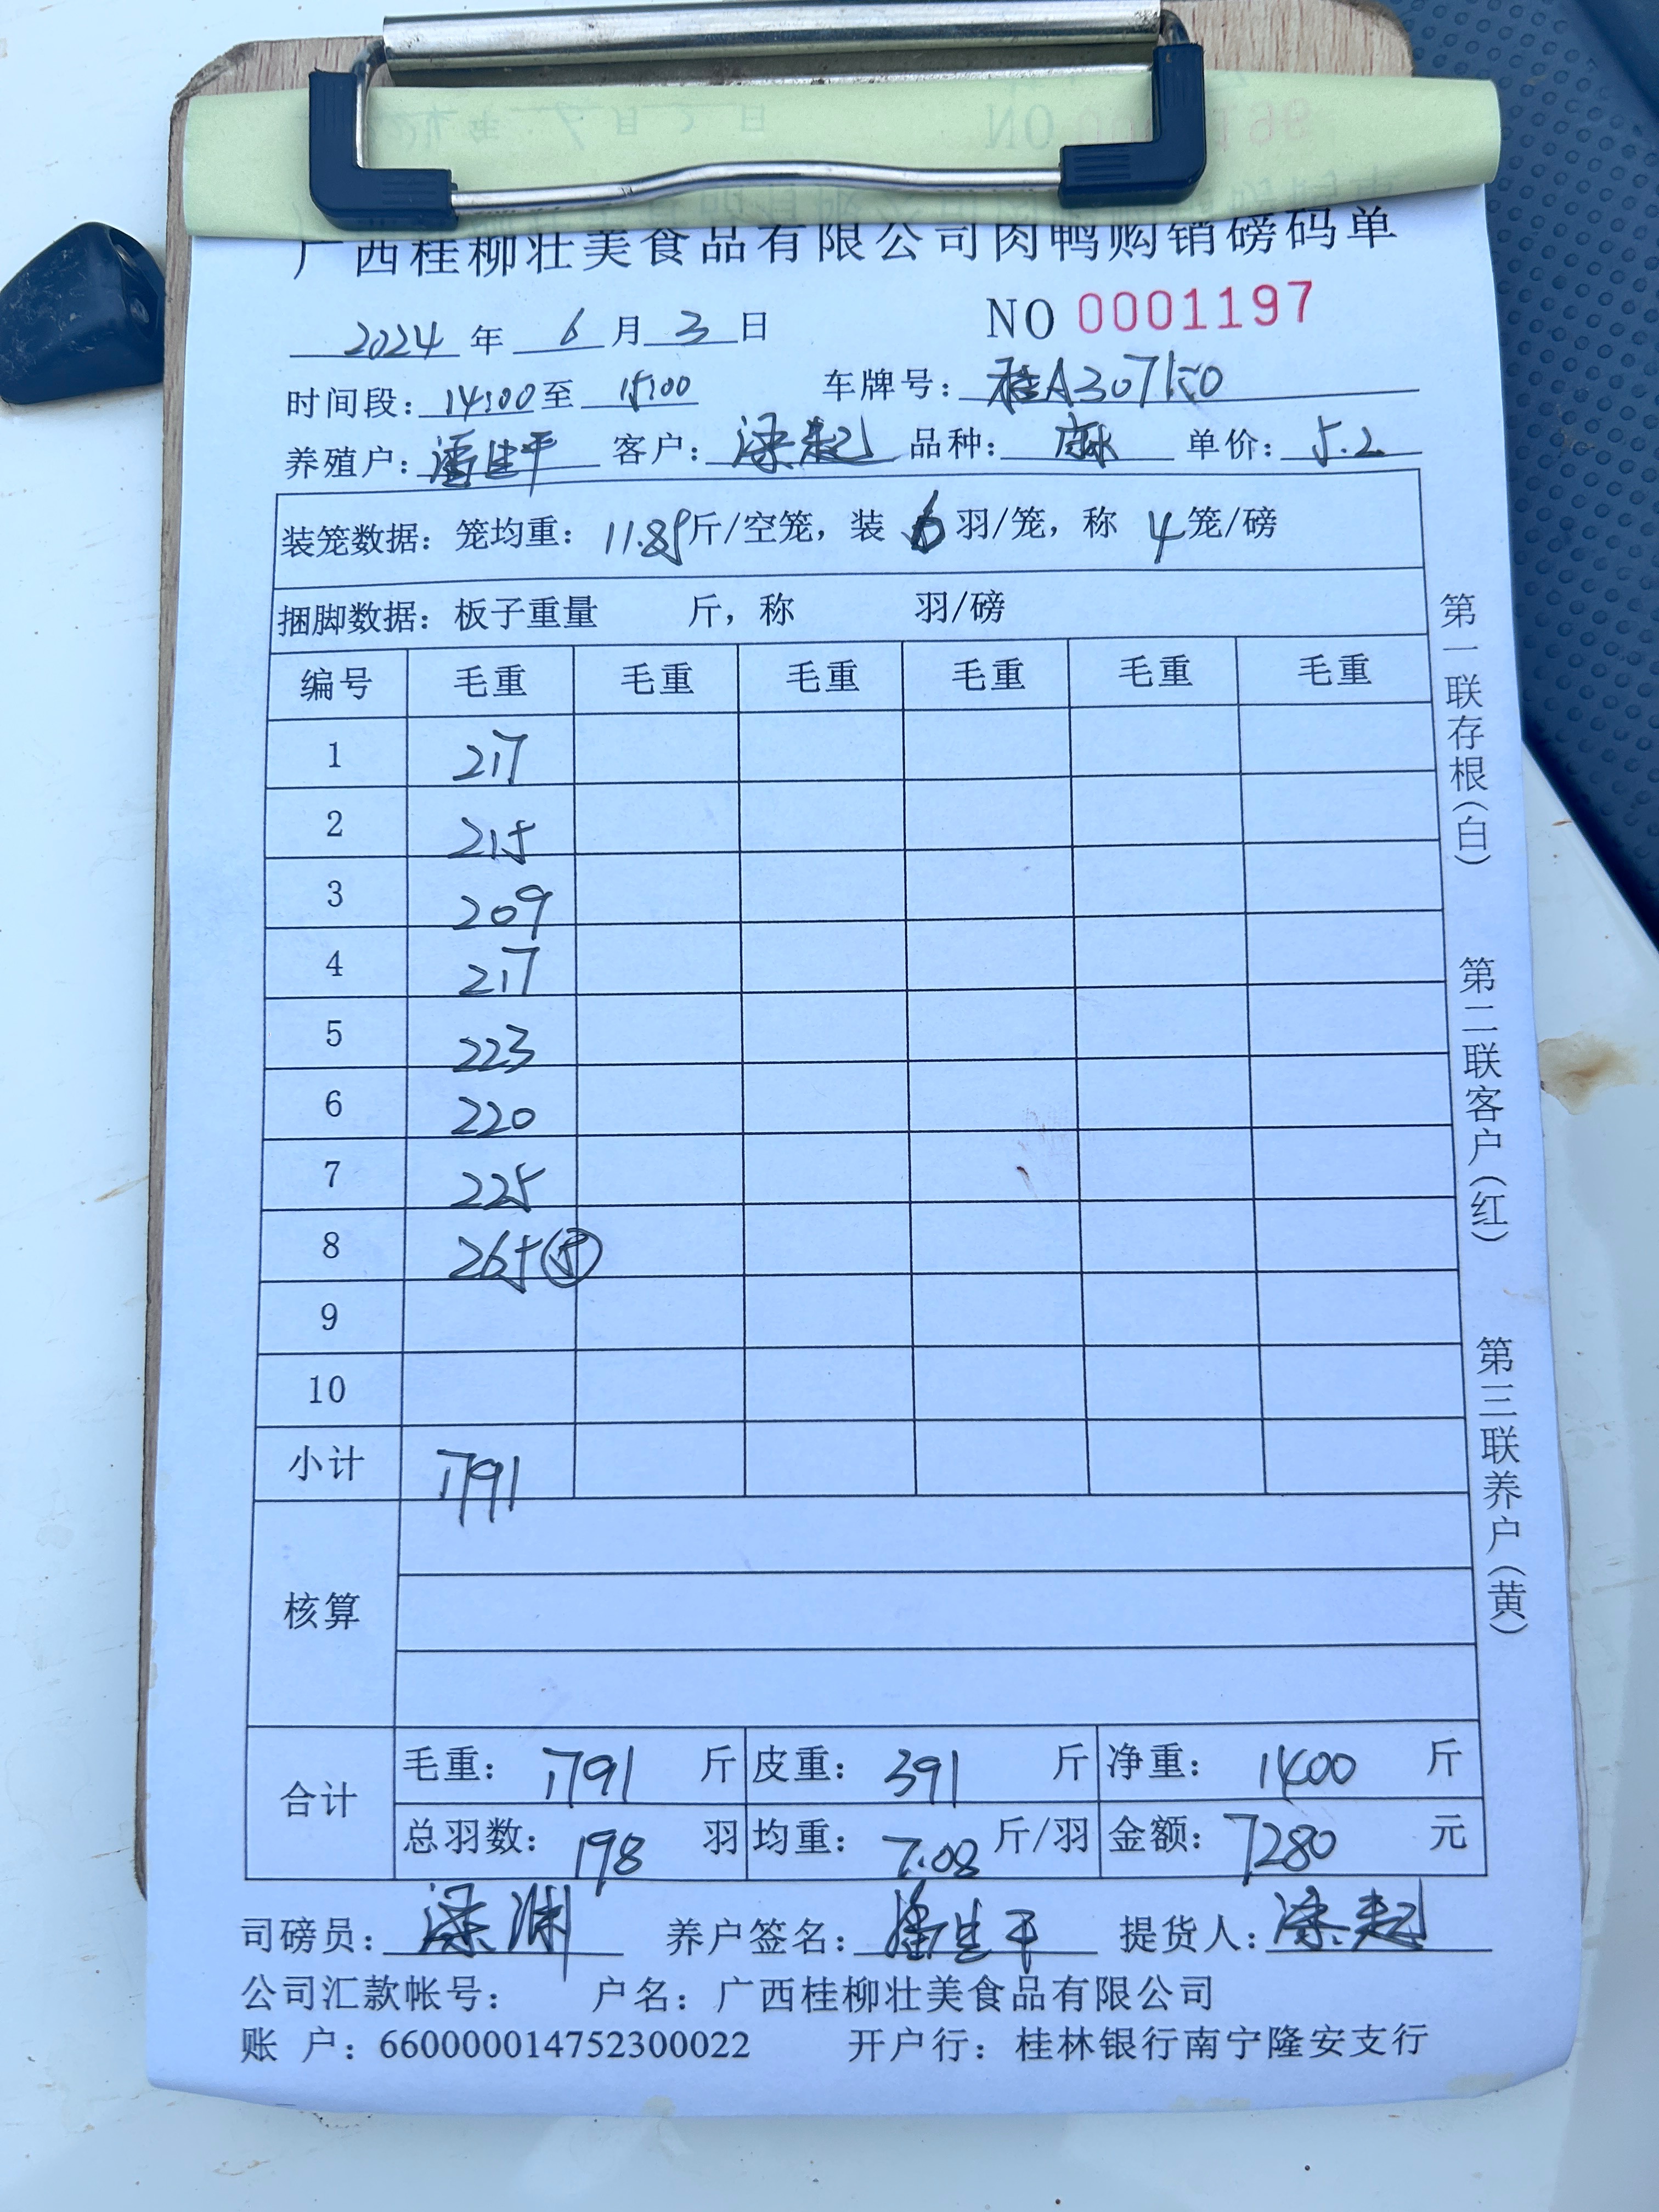 广西桂柳壮美食品有限公司肉鸭购销磅码单
2024年 6月3日 NO 0001197
时间段：14:00至 15:00 车牌号：桂A307
养殖户：潘 平 客户：梁 起 品种： 单价：5.2
装笼数据：笼均重：11.85斤/空笼，装 6 羽/笼，称 4 笼/磅
捆脚数据：板子重量 斤，称 羽/磅
编号 毛重 毛重 毛重 毛重 毛重 毛重
1 217
2 215
3 209
4 217
5 223
6 220
7 225
8 265⑤
9
10
小计 1791
核算
合计 毛重：1791 斤 皮重：391 斤 净重：1400 斤
总羽数：198 羽 均重：7.08 斤/羽 金额：7280 元
司磅员：梁 养户签名：潘 平 提货人：梁 起
公司汇款帐号： 户名：广西桂柳壮美食品有限公司
账 户：660000014752300022 开户行：桂林银行南宁隆安支行
第一联存根（白） 第二联客户（红） 第三联养户（黄）